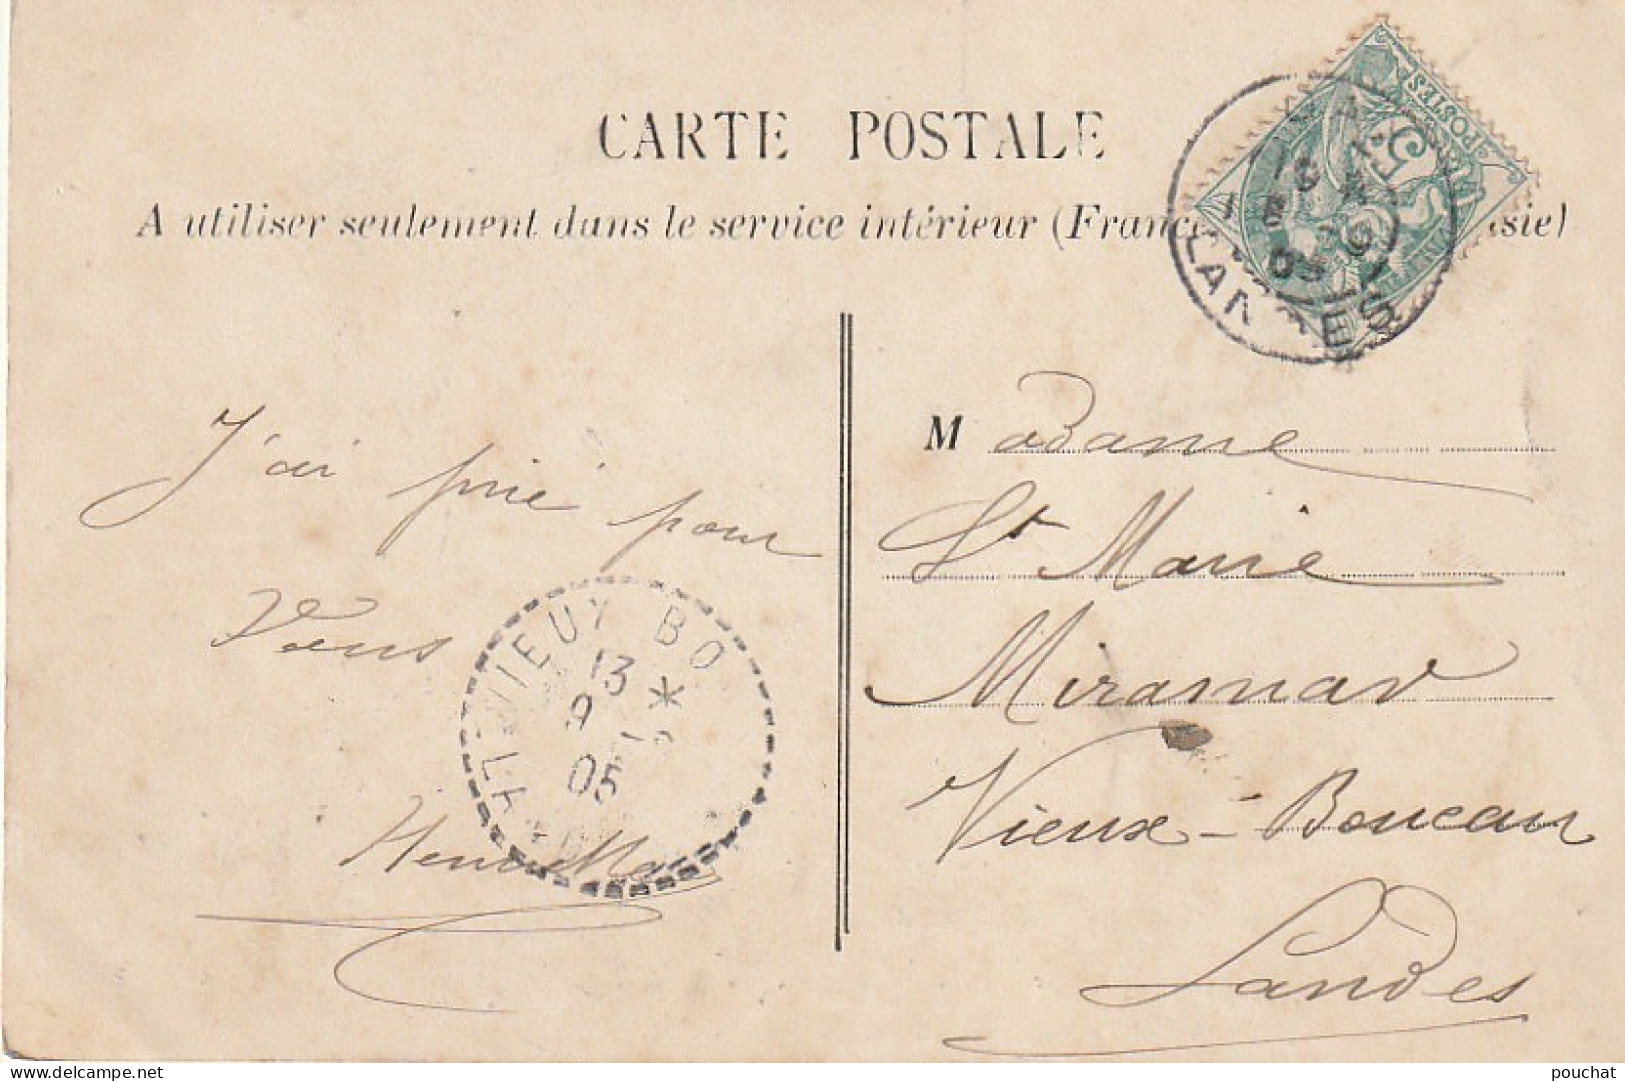 CARTE POSTALE
A utiliser seulement dans le service intérieur (Franc sie)
POSTES
5
LAN ES
05
J'ai prié pour
Vous
VIEUX BO
13
9
05
M adame
St Marie
Miramar
Vieux-Boucau
Landes
pouchat